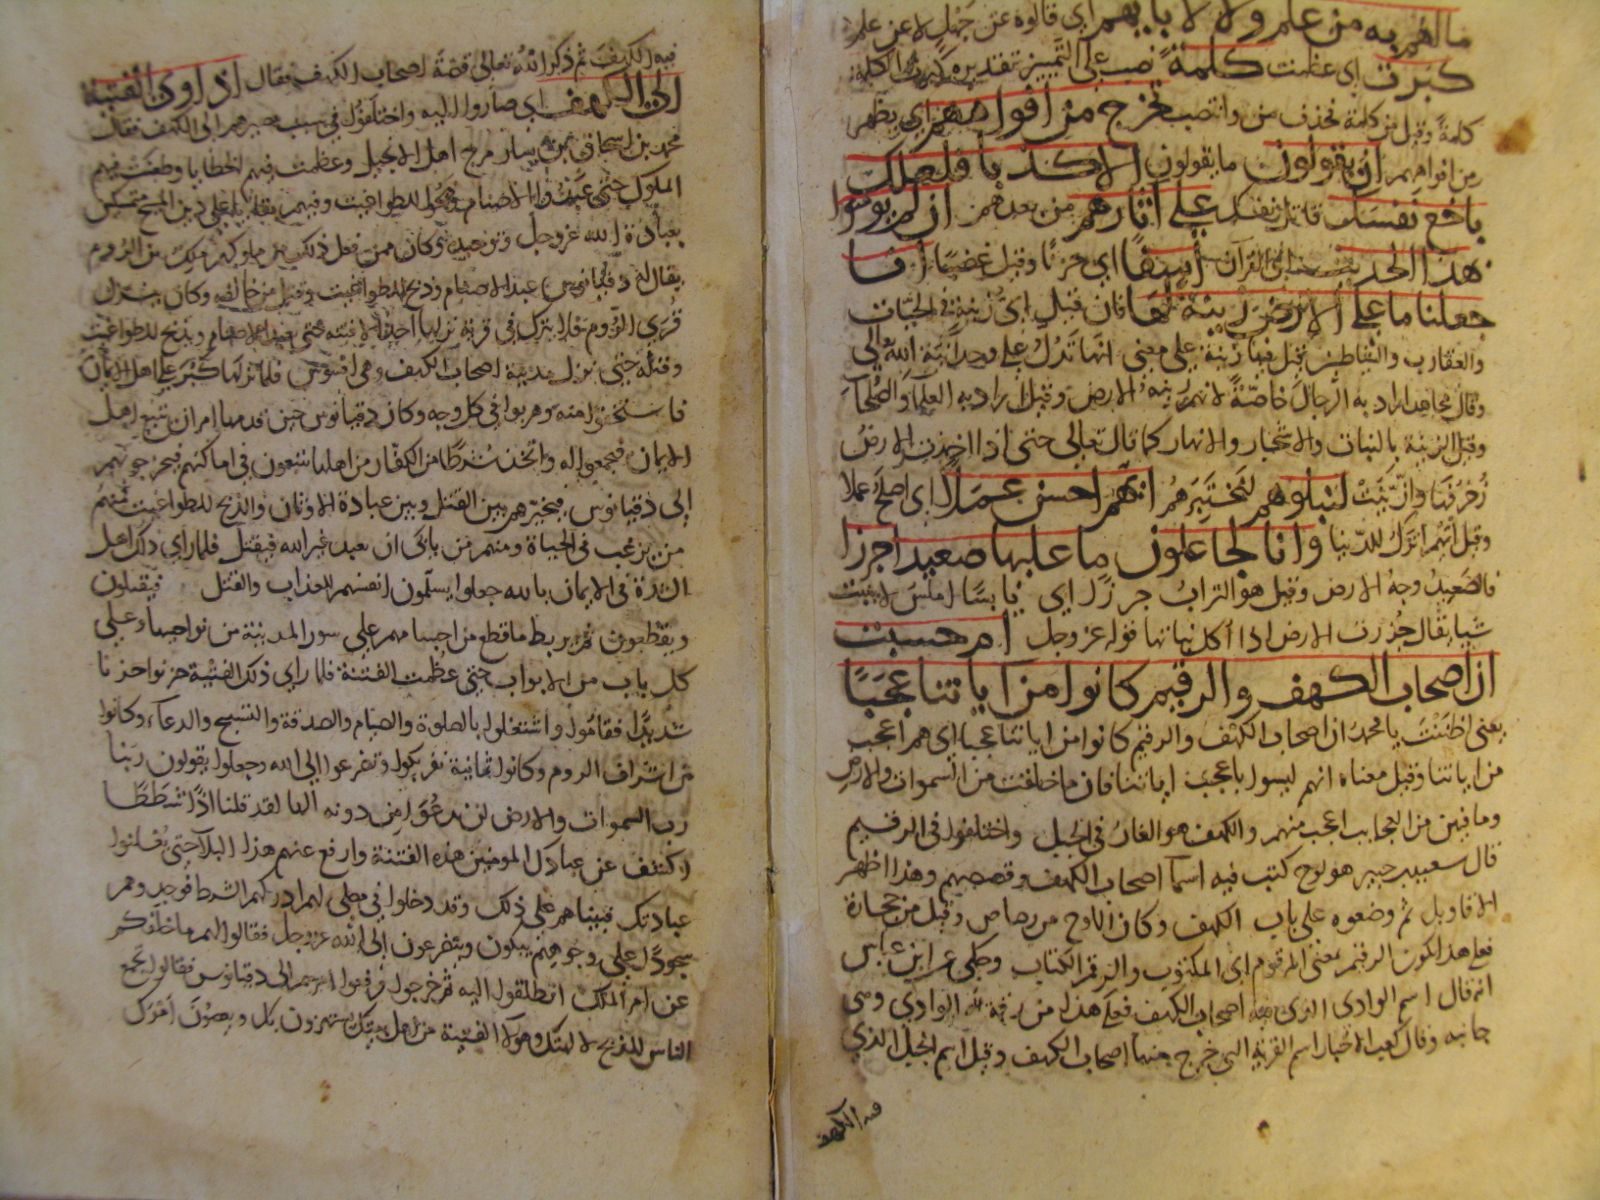 ما لهم به من علم ولا لابايهم اي قالوه عن جهل لا عن علم
كبرت اي عظمت كلمة نصب على التمييز تقديره كبرت الكلمة
كلمة وقيل من كلمة فحذف من وانتصب تخرج من أفواههم اي يظهر
من افواههم ان يقولون ما يقولون الا كذبا فلعلك
باخع نفسك قاتل نفسك على آثارهم من بعدهم ان لم يومنوا
بهذا الحديث القرآن أسفا اي حزنا وقيل غضبا انا
جعلنا ما على الارض زينة لها فان قيل اي زينة في الحيات
والعقارب والشياطين قيل فيها زينة على معنى انها تدل على وحدانية الله تعالى
وقال مجاهد اراد به الرجال خاصة لانهم زينة الارض وقيل اراد به العلما والصلحا
وقيل الزينة بالنبات والاشجار والانهار كما قال تعالى حتى اذا اخذت الارض
زخرفها وازينت لنبلوهم لنختبرهم ايهم احسن عملا اي اصلح عملا
وقيل ايهم اترك للدنيا وانا لجاعلون ما عليها صعيدا جرزا
فالصعيد وجه الارض وقيل هو التراب جرزا اي يابسا املس لا ينبت
شيا يقال جرزت الارض اذا اكل نباتها قوله عز وجل ام حسبت
ان اصحاب الكهف والرقيم كانوا من آياتنا عجبا
يعني اظننت يا محمد ان اصحاب الكهف والرقيم كانوا من اياتنا عجبا اي هم اعجب
من اياتنا وقيل معناه انهم ليسوا باعجب اياتنا فان ما خلقت من السموات والارض
وما فيهن من العجايب اعجب منهم والكهف هو الغار في الجبل واختلفوا في الرقيم
قال سعيد بن جبير هو لوح كتب فيه اسما اصحاب الكهف وقصصهم وهذا اظهر
الاقاويل ثم وضعوه على باب الكهف وكان اللوح من رصاص وقيل من حجارة
فعلى هذا يكون الرقيم بمعنى المرقوم اي المكتوب والرقم الكتاب وحكي عن ابن عباس
انه قال اسم الوادي الذي فيه اصحاب الكهف فعلى هذا من رقمة الوادي وهي
جانبه وقال كعب الاحبار اسم القرية التي خرج منها اصحاب الكهف وقيل اسم الجبل الذي
فيه الكهف
فيه الكهف ثم ذكر الله تعالى قصة اصحاب الكهف فقال اذ اوى الفتية
الى الكهف اي صاروا اليه واختلفوا في سبب مصيرهم الى الكهف فقال
محمد بن اسحاق بن يسار مرج اهل الانجيل وعظمت فيهم الخطايا وطغت فيهم
الملوك حتى عبدوا الاصنام وذبحوا للطواغيت وفيهم بقايا على دين المسيح متمسكين
بعبادة الله عز وجل وتوحيده وكان ممن فعل ذلك من ملوكهم ملك من الروم
يقال له دقيانوس عبد الاصنام وذبح للطواغيت وقتل من خالفه وكان ينزل
قرى الروم فلا يترك في قرية نزلها احدا الا فتنه حتى يعبد الاصنام ويذبح للطواغيت
وقتله حتى نزل مدينة اصحاب الكهف وهي افسوس فلما نزلها كبر على اهل الايمان
فاستخفوا منه وهربوا في كل وجه وكان دقيانوس حين قدمها امر ان يتبع اهل
الايمان فيجمعوا له واتخذ شرطا من الكفار من اهلها يتبعون في اماكنهم فيخرجونهم
إلى دقيانوس فيخيرهم بين القتل وبين عبادة الاوثان والذبح للطواغيت فمنهم
من يرغب في الحياة ومنهم من يأبى ان يعبد غير الله فيقتل فلما راى ذلك اهل
الشدة في الايمان بالله جعلوا يسلمون انفسهم للعذاب والقتل فيقتلون
ويقطعون ثم يربط ما قطع من اجسامهم على سور المدينة من نواحيها وعلى
كل باب من الابواب حتى عظمت الفتنة فلما راى ذلك الفتية حزنوا حزنا
شديدا فقاموا واشتغلوا بالصلوة والصيام والصدقة والتسبيح والدعاء وكانوا
من اشراف الروم وكانوا ثمانية نفر بكوا وتضرعوا الى الله وجعلوا يقولون ربنا
رب السموات والارض لن ندعو من دونه الها لقد قلنا اذا شططا
اكشف عن عبادك المومنين هذه الفتنة وارفع عنهم هذا البلا حتى يعلنوا
عبادتك فبينما هم على ذلك وقد دخلوا في مصلى لهم ادركهم الشرط فوجدوهم
سجودا على وجوههم يبكون ويتضرعون الى الله عز وجل فقالوا لهم ما خلفكم
عن امر الملك انطلقوا اليه ثم خرجوا فرفعوا امرهم الى دقيانوس فقالوا تجمع
الناس للذبح لالهتك وهولا الفتية من اهل بيتك يستهزون بك ويعصون أمرك